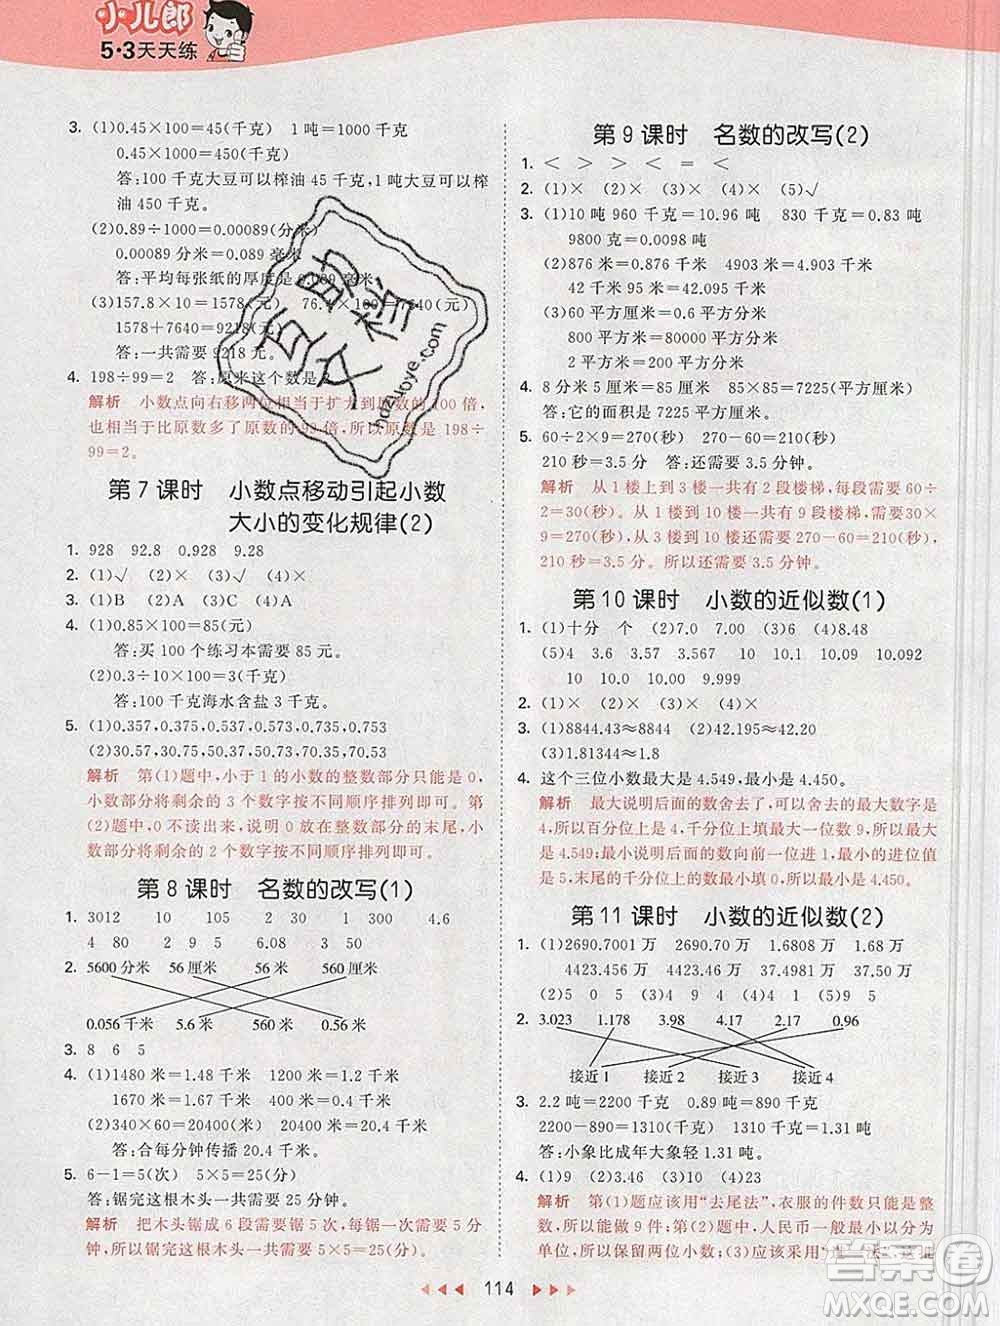 小儿郎
5·3天天练
3. (1)0.45×100=45(千克) 1吨=1000千克
0.45×1000=450(千克)
答:100千克大豆可以榨油45千克,1吨大豆可以榨
油450千克。
(2)0.89÷1000=0.00089(分米)
0.00089分米=0.089毫米
答:平均每张纸的厚度是0.089毫米。
(3)157.8×10=1578(元) 76.4×100=7640(元)
1578+7640=9218(元)
答:一共需要9218元。
4. 198÷99=2 答:原来这个数是2
解析 小数点向右移两位相当于扩大到原数的100倍,
也相当于比原数多了原数的99倍,所以原数是198÷
99=2。
第7课时 小数点移动引起小数
大小的变化规律(2)
1. 928 92.8 0.928 9.28
2. (1)√ (2)× (3)× (4)×
3. (1)B (2)A (3)A
4. (1)0.85×100=85(元)
答:买100个练习本需要85元。
(2)0.3÷10×100=3(千克)
答:100千克海水含盐3千克。
5. (1)0.357,0.375,0.537,0.573,0.735,0.753
(2)30.57,30.75,50.37,50.73,70.35,70.53
解析 第(1)题中,小于1的小数的整数部分只能是0,
小数部分将剩余的3个数字按不同顺序排列即可。第
(2)题中,0不读出来,说明0放在整数部分的末尾,小
数部分将剩余的2个数字按不同顺序排列即可。
第8课时 名数的改写(1)
1. 3012 10 105 2 30 1 300 4.6
4 80 2 905 6.08 3 450
2. 5600分米 56厘米 56米 560厘米
0.056千米 5.6米 560米 0.56米
3. 8 6 5
4. (1)1480米=1.48千米 1200米=1.2千米
1670米=1.67千米 400米=0.4千米
(2)340×60=20400(米) 20400米=20.4千米
答:合每分钟传播20.4千米。
5. 6-1=5(次) 5×5=25(分)
答:锯完这根木头一共需要25分钟。
解析 把木头锯成6段需要锯5次,每锯一次需要5分
钟,所以锯完这根木头一共需要5×5=25(分)。
第9课时 名数的改写(2)
1. < > > < = <
2. (1)× (2)× (3)× (4)× (5)√
3. (1)10吨960千克=10.96吨 830千克=0.83吨
9800克=0.0098吨
(2)876米=0.876千米 4903米=4.903千米
42千米95米=42.095千米
(3)60平方厘米=0.6平方分米
800平方厘米=8平方分米
2平方米=200平方分米
4. 8分米5厘米=85厘米 85×85=7225(平方厘米)
答:它的面积是7225平方厘米。
5. 60÷2×9=270(秒) 270-60=210(秒)
210秒=3.5分 答:还需要3.5分钟。
解析 从1楼上到3楼一共有2段楼梯,每段需要60÷
2=30(秒)。从1楼到10楼一共有9段楼梯,需要30×
9=270(秒),所以从3楼到10楼还需要270-60=210
(秒)=3.5分。所以还需要3.5分钟。
第10课时 小数的近似数(1)
1. (1)十分 个 (2)7.0 7.00 (3)6 (4)8.48
(5)4 3.6 3.57 3.567 10 10.1 10.09 10.092
10 10.0 10.00 9.999
2. (1)× (2)× (3)× (4)×
3. (1)8844.43≈8844 (2)42.195≈42.20
(3)1.81344≈1.8
4. 这个三位小数最大是4.549,最小是4.450。
解析 最大说明后面的数舍去了,可以舍去的最大数字是
4,所以百分位上填4,千分位上填最大一位数9,所以最大
是4.549;最小说明后面的数向前一位进一,最小的进位值
是5,末尾的千分位上数字最小填0,所以最小是4.450。
第11课时 小数的近似数(2)
1. (1)2690.7001万 2690.70万 1.6808万 1.68万
4423.456万 4423.46万 37.4981万 37.50万
(2)5 0 5 (3)4 9 5
2. 3.023 1.178 3.98 4.17 2.17 0.96
接近1 接近2 接近3 接近4
3. 2.2吨=2200千克 0.89吨=890千克
2200-890=1310(千克)=1.31(吨)
答:小象比成年大象轻1.31吨。
4. (1)9 (2)3.46 (3)4 (4)23
解析 第(1)题应该用“去尾法”,衣服的件数只能是整
数,所以能做9件;第(2)题中,人民币一般以分为最小单
位,所以保留两位小数;(3)应该采用“进一法”
114
互助文档
hdzuoye.com
答案圈
MXQE.COM